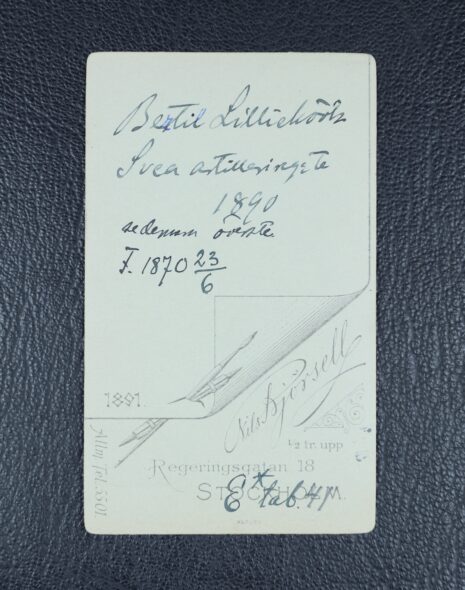 Bertil Lilliehöök
Svea artillerirgte
1890
sedermera överste
F. 1870 23/6
1891.
Nils Björsell
½ tr. upp
Allm. Tel. 5301
Regeringsgatan 18
STOCKHOLM.
E* tab. 41